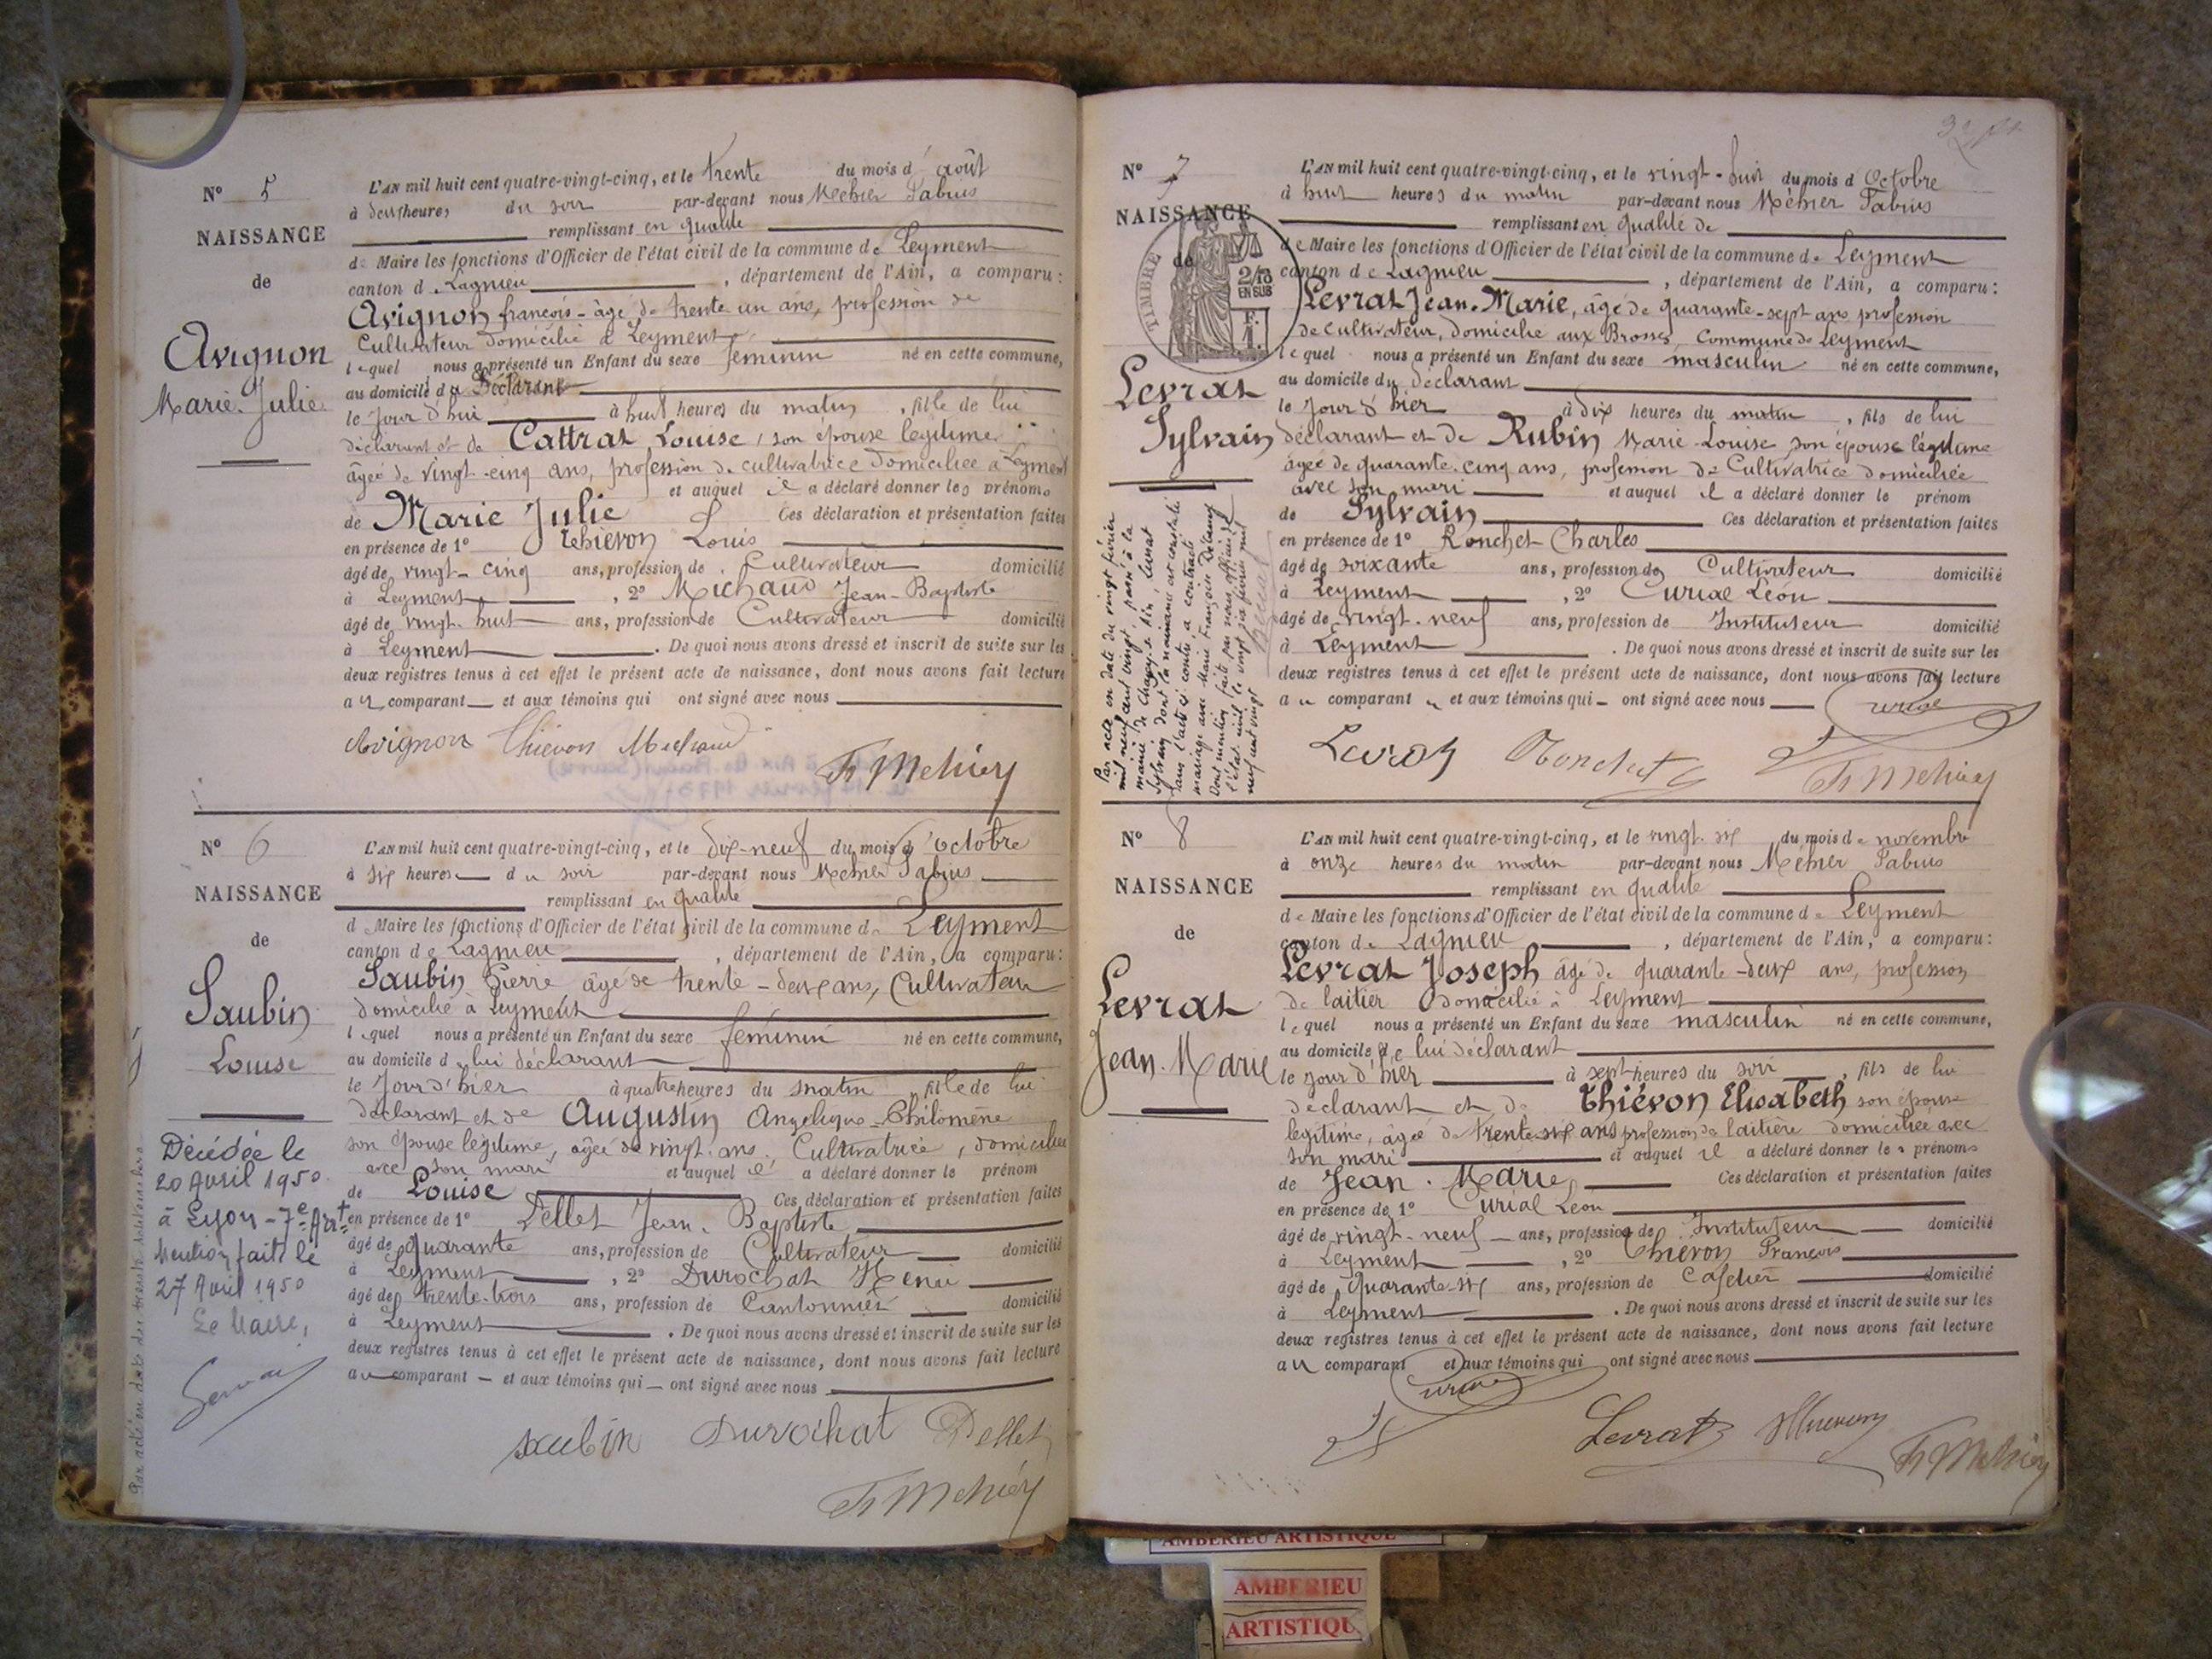 N° 5
NAISSANCE
de
Avignon
Marie-Julie
L'AN mil huit cent quatre-vingt-cinq, et le trente du mois d'août
à deux heures du soir par-devant nous Méhier Fabius
remplissant en qualité
de Maire les fonctions d'Officier de l'état civil de la commune de Leyment
canton de Lagnieu, département de l'Ain, a comparu:
Avignon françois âgé de trente un ans, profession de
Cultivateur domicilié à Leyment
lequel nous a présenté un Enfant du sexe féminin né en cette commune,
au domicile du Déclarant
le Jour d'hui à huit heures du matin, fille de lui
déclarant et de Cattrat Louise, son épouse légitime
âgée de vingt-cinq ans, profession de cultivatrice domiciliée à Leyment
et auquel il a déclaré donner les prénoms
de Marie Julie Ces déclaration et présentation faites
en présence de 1° Thiévon Louis
âgé de vingt-cinq ans, profession de Cultivateur domicilié
à Leyment, 2° Michaud Jean-Baptiste
âgé de vingt-huit ans, profession de Cultivateur domicilié
à Leyment. De quoi nous avons dressé et inscrit de suite sur les
deux registres tenus à cet effet le présent acte de naissance, dont nous avons fait lecture
au comparant et aux témoins qui ont signé avec nous
Avignon Thiévon Michaud
Fs Méhier
N° 6
NAISSANCE
de
Saubin
Louise
Décédée le
20 Avril 1950
à Lyon-7e Arrt
Mention faite le
27 Avril 1950
Le Maire,
L'AN mil huit cent quatre-vingt-cinq, et le dix-neuf du mois d'octobre
à six heures du soir par-devant nous Méhier Fabius
remplissant en qualité
de Maire les fonctions d'Officier de l'état civil de la commune de Leyment
canton de Lagnieu, département de l'Ain, a comparu:
Saubin Pierre âgé de trente-deux ans, Cultivateur
domicilié à Leyment
lequel nous a présenté un Enfant du sexe féminin né en cette commune,
au domicile de lui déclarant
le Jour d'hier à quatre heures du matin, fille de lui
déclarant et de Augustin Angélique-Philomène
son épouse légitime, âgée de vingt ans, Cultivatrice, domiciliée
avec son mari et auquel il a déclaré donner le prénom
de Louise Ces déclaration et présentation faites
en présence de 1° Dellet Jean-Baptiste
âgé de quarante ans, profession de Cultivateur domicilié
à Leyment, 2° Durochat Henri
âgé de trente-trois ans, profession de Cantonnier domicilié
à Leyment. De quoi nous avons dressé et inscrit de suite sur les
deux registres tenus à cet effet le présent acte de naissance, dont nous avons fait lecture
au comparant et aux témoins qui ont signé avec nous
Saubin Durochat Dellet
Fs Méhier
N° 7
NAISSANCE
de
TIMBRE
2/10
EN SUS
F.
1.
Levrat
Sylvain
Par acte en date du vingt février
mil neuf cent vingt, passé à la
mairie de Chazey-s-Ain, Levrat
Sylvain dont la naissance est constatée
dans l'acte ci-contre, a contracté
mariage avec Marie Françoise
Dont mention faite par nous officier de
l'état civil le vingt six février mil
neuf cent vingt
L'AN mil huit cent quatre-vingt-cinq, et le vingt-huit du mois d'Octobre
à huit heures du matin par-devant nous Méhier Fabius
remplissant en qualité de
de Maire les fonctions d'Officier de l'état civil de la commune de Leyment
canton de Lagnieu, département de l'Ain, a comparu:
Levrat Jean-Marie, âgé de quarante-sept ans profession
de cultivateur, domicilié aux Brosses, Commune de Leyment
lequel nous a présenté un Enfant du sexe masculin né en cette commune,
au domicile du déclarant
le Jour d'hier à dix heures du matin, fils de lui
déclarant et de Rubin Marie-Louise son épouse légitime
âgée de quarante-cinq ans, profession de Cultivatrice domiciliée
avec son mari et auquel il a déclaré donner le prénom
de Sylvain Ces déclaration et présentation faites
en présence de 1° Ronchet Charles
âgé de soixante ans, profession de Cultivateur domicilié
à Leyment, 2° Curial Léon
âgé de vingt-neuf ans, profession de Instituteur domicilié
à Leyment. De quoi nous avons dressé et inscrit de suite sur les
deux registres tenus à cet effet le présent acte de naissance, dont nous avons fait lecture
au comparant et aux témoins qui ont signé avec nous
Curial
Levrat Ronchet
Fs Méhier
N° 8
NAISSANCE
de
Levrat
Jean-Marie
L'AN mil huit cent quatre-vingt-cinq, et le vingt-six du mois de novembre
à onze heures du matin par-devant nous Méhier Fabius
remplissant en qualité
de Maire les fonctions d'Officier de l'état civil de la commune de Leyment
canton de Lagnieu, département de l'Ain, a comparu:
Levrat Joseph, âgé de quarante-deux ans, profession
de laitier domicilié à Leyment
lequel nous a présenté un Enfant du sexe masculin né en cette commune,
au domicile de lui déclarant
le Jour d'hier à sept heures du soir, fils de lui
déclarant et de Thiévon Elisabeth son épouse
légitime, âgée de trente-six ans profession de laitière domiciliée avec
son mari et auquel il a déclaré donner les prénoms
de Jean-Marie Ces déclaration et présentation faites
en présence de 1° Curial Léon
âgé de vingt-neuf ans, profession de Instituteur domicilié
à Leyment, 2° Thiévon François
âgé de Quarante-six ans, profession de Cafetier domicilié
à Leyment. De quoi nous avons dressé et inscrit de suite sur les
deux registres tenus à cet effet le présent acte de naissance, dont nous avons fait lecture
au comparant et aux témoins qui ont signé avec nous
Curial
Levrat Thiévon
Fs Méhier
AMBERIEU ARTISTIQUE
AMBERIEU
ARTISTIQU